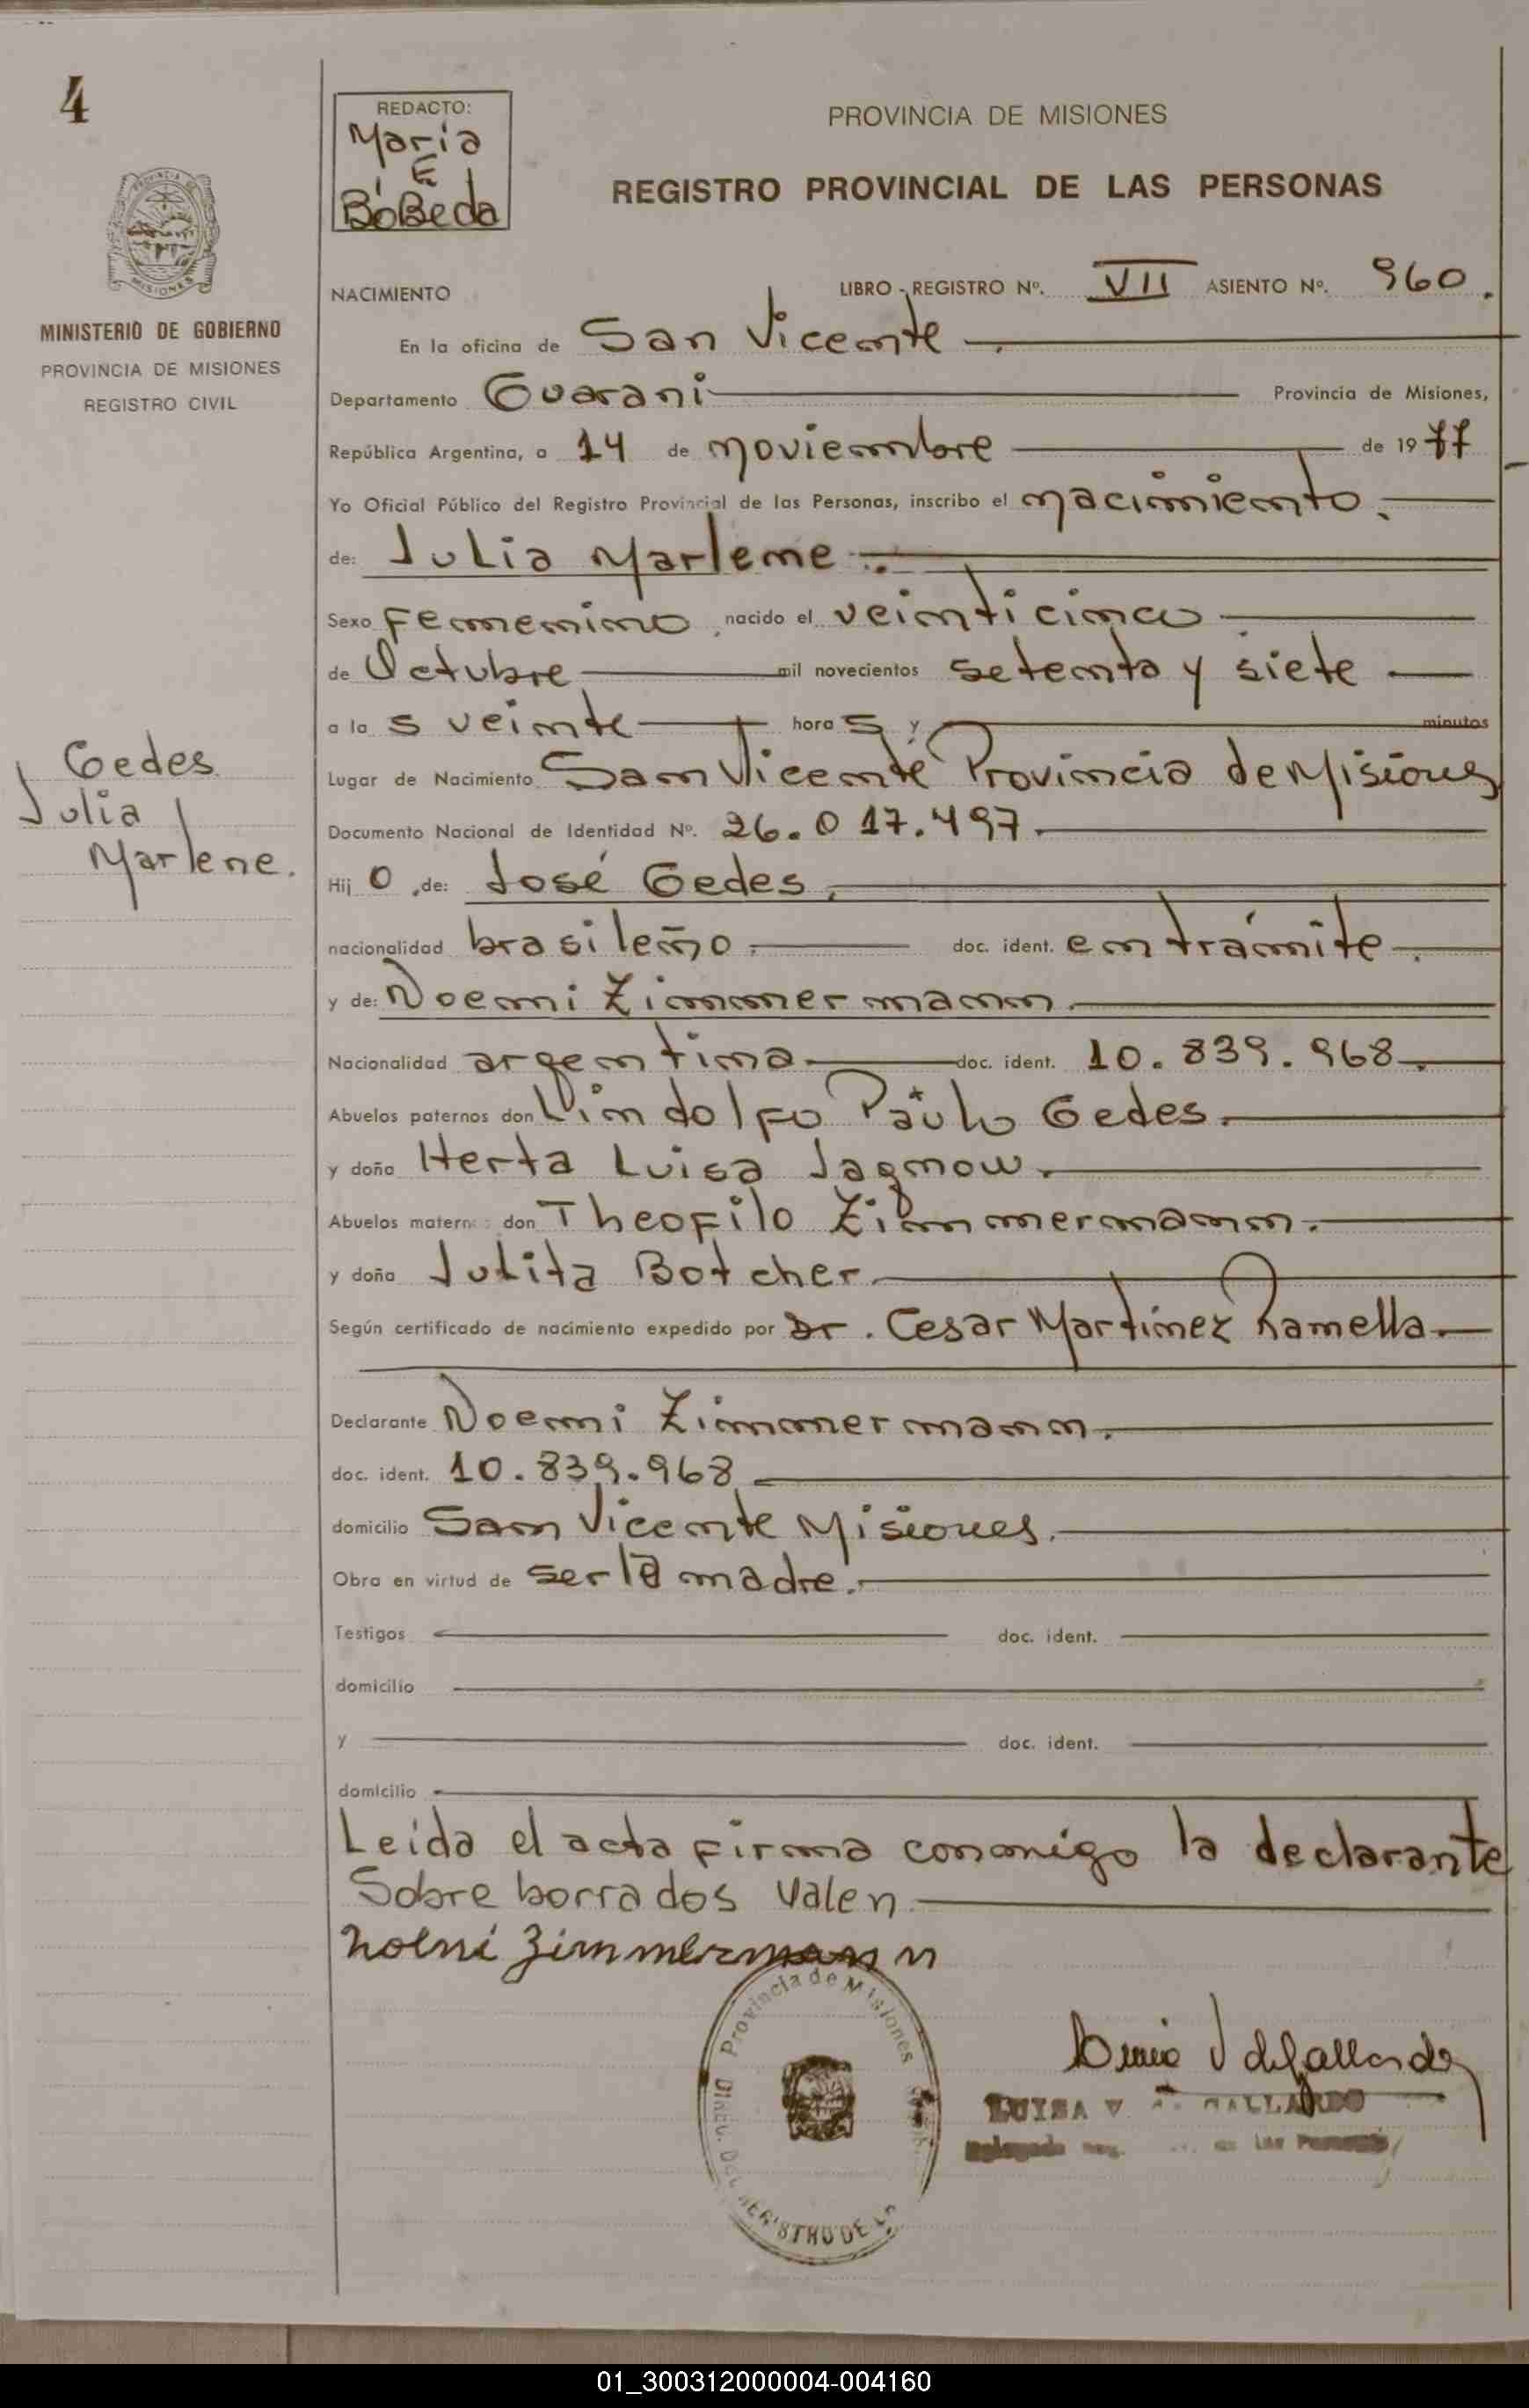 4
REDACTO:
Maria
E
BóBeda
PROVINCIA DE MISIONES
REGISTRO PROVINCIAL DE LAS PERSONAS
PROVINCIA DE
MISIONES
MINISTERIO DE GOBIERNO
PROVINCIA DE MISIONES
REGISTRO CIVIL
Gedes
Julia
Marlene.
NACIMIENTO LIBRO - REGISTRO Nº. VII ASIENTO Nº. 960.
En la oficina de San Vicente.
Departamento Guarani Provincia de Misiones,
República Argentina, a 14 de noviembre de 1977
Yo Oficial Público del Registro Provincial de las Personas, inscribo el nacimiento.
de: Julia Marlene.
Sexo femenino, nacido el veinticinco
de Octubre mil novecientos setenta y siete
a la s veinte hora s y minutos
Lugar de Nacimiento San Vicente Provincia de Misiones
Documento Nacional de Identidad Nº. 26.017.497.
Hij o, de: José Gedes.
nacionalidad brasileño. doc. ident. en trámite.
y de: Noemi Zimmermann.
Nacionalidad argentina doc. ident. 10.839.968.
Abuelos paternos don Lindolfo Paulo Gedes.
y doña Herta Luisa Jagnow.
Abuelos matern don Theofilo Zimmermann.
y doña Julita Botcher.
Según certificado de nacimiento expedido por Dr. Cesar Martinez Ramella.
Declarante Noemi Zimmermann.
doc. ident. 10.839.968.
domicilio San Vicente Misiones.
Obra en virtud de ser la madre.
Testigos doc. ident.
domicilio
y doc. ident.
domicilio
Leida el acta firma conmigo la declarante
Sobre borrados valen.
Noemi Zimmermann
Provincia de Misiones
REGISTRO DE
LUISA V GALLARDO
01_300312000004-004160